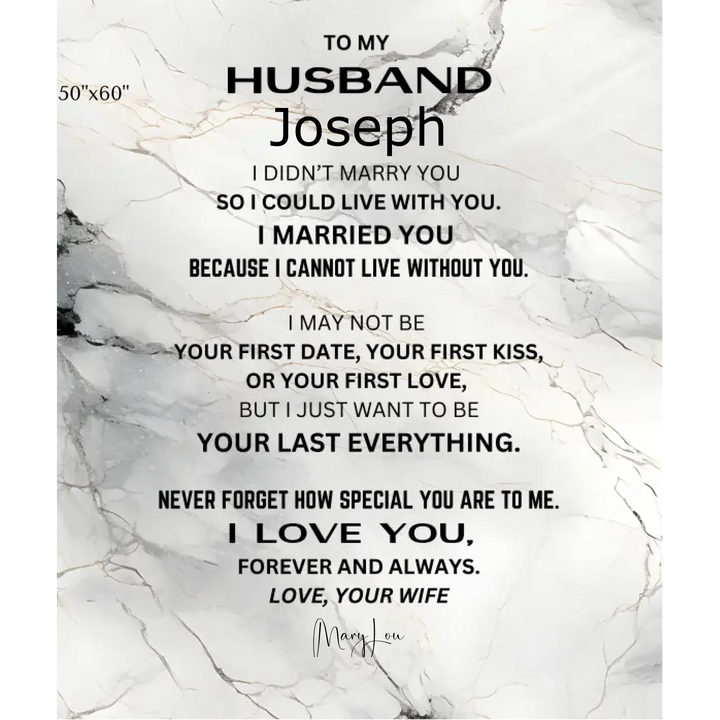 TO MY
HUSBAND
50"x60"
Joseph
I DIDN'T MARRY YOU
SO I COULD LIVE WITH YOU.
I MARRIED YOU
BECAUSE I CANNOT LIVE WITHOUT YOU.
I MAY NOT BE
YOUR FIRST DATE, YOUR FIRST KISS,
OR YOUR FIRST LOVE,
BUT I JUST WANT TO BE
YOUR LAST EVERYTHING.
NEVER FORGET HOW SPECIAL YOU ARE TO ME.
I LOVE YOU,
FOREVER AND ALWAYS.
LOVE, YOUR WIFE
MaryLou